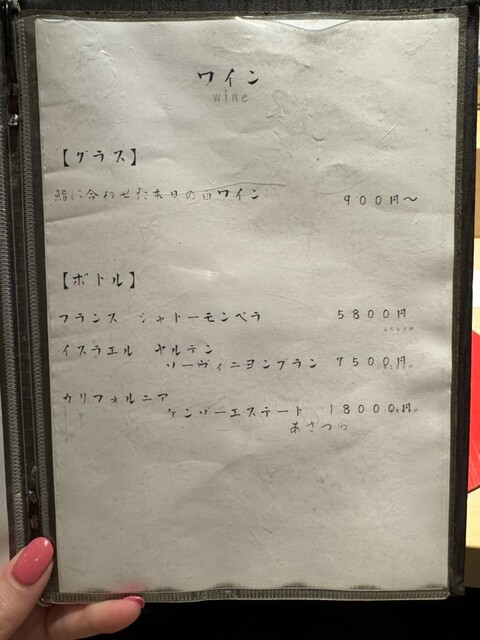 ワイン
wine
【グラス】
鮨に合わせた本日の白ワイン 900円〜
【ボトル】
フランス シャトーモンペラ 5800円
イスラエル ヤルデン
ソーヴィニヨンブラン 7500円
カリフォルニア
ケンゾーエステート 18000円
あさつゆ